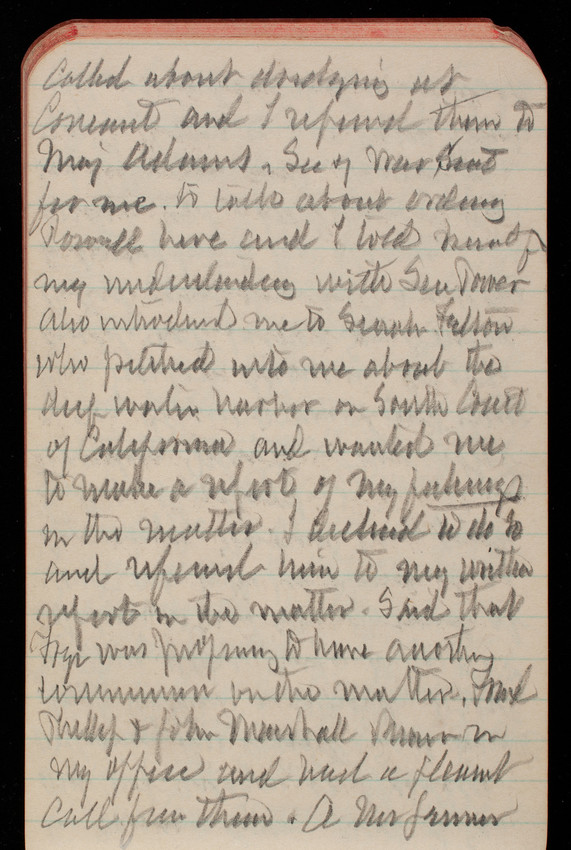 Called about dredging at
Coneaut and I referred them to
Maj Adams. Sec of War sent
for me to talk about ordering
Powell here and I told him of
my understanding with Gen Power
also introduced me to Senator Felton
who pitched into me about the
deep water harbor on South Coast
of California and wanted me
to make a report of my feelings
in the matter. I declined to do so
and referred him to my written
report in the matter. Said that
Frye was proposing to have another
commission in the matter. Fred
Phillips & John Marshall Brown in
my office and had a pleasant
call from them. A Mr